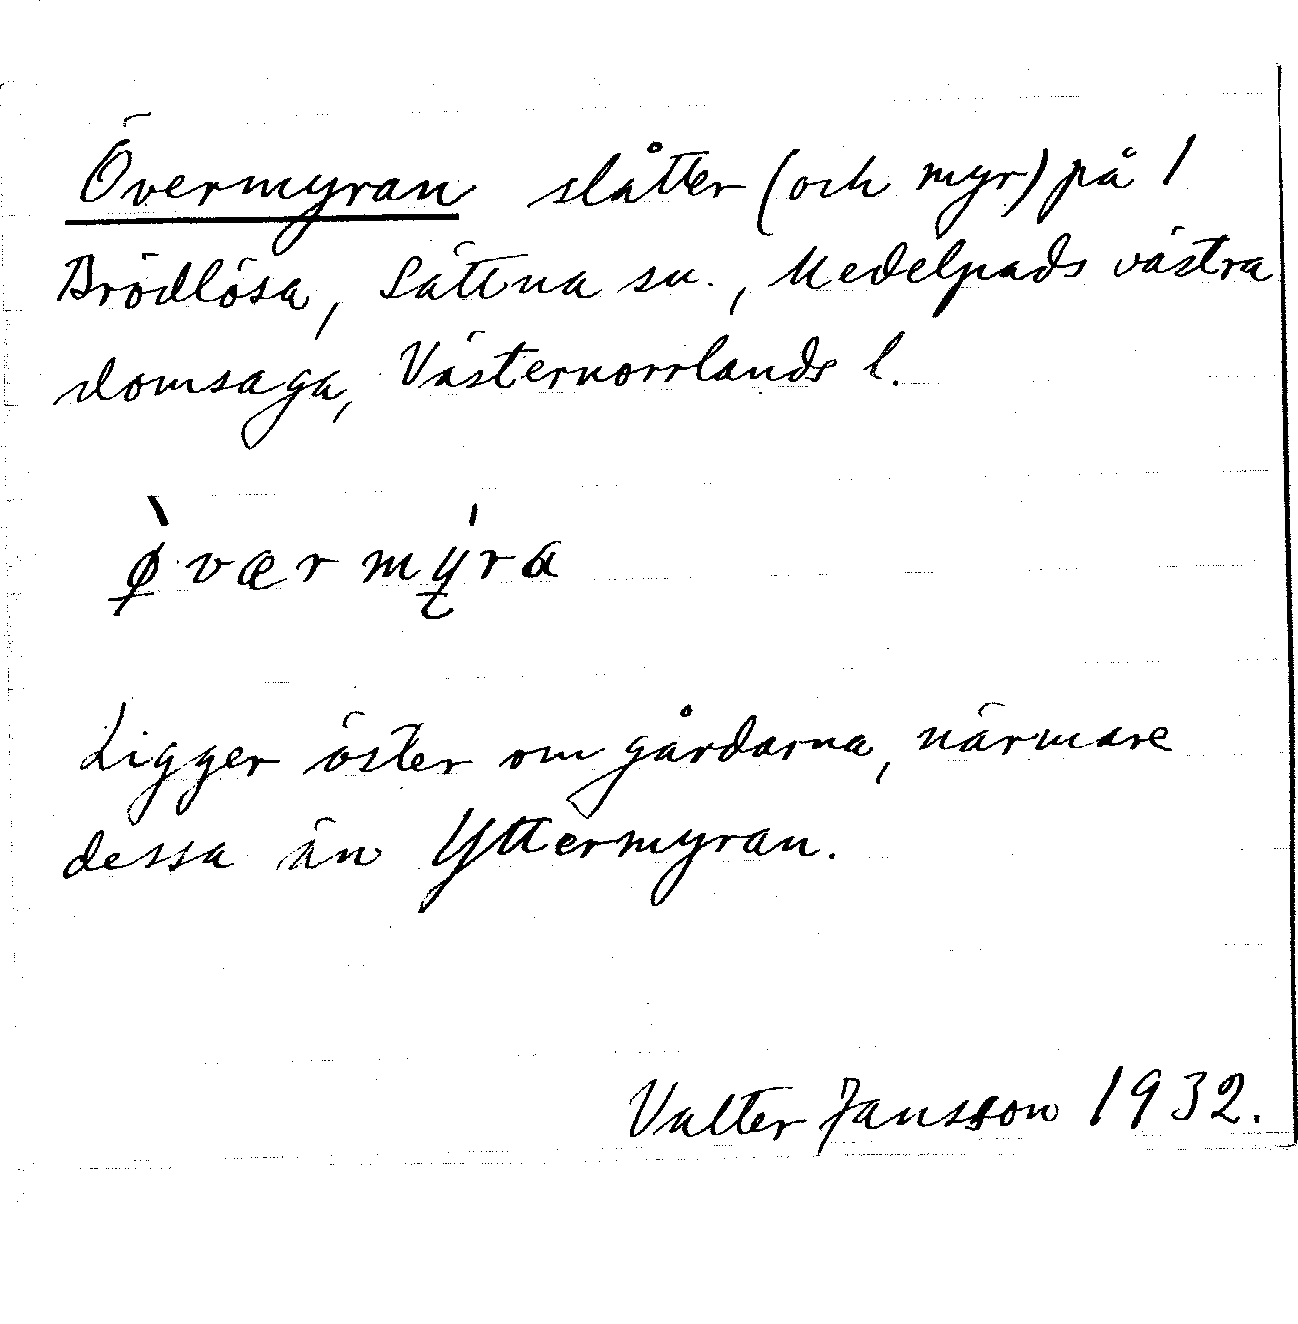 Övermyran slåtter (och myr) på 1
Brödlösa, Sättna sn., Medelpads västra
domsaga, Västernorrlands l.
ø̀værmýra
Ligger öster om gårdarna, närmare
dessa än Yttermyran.
Valter Jansson 1932.